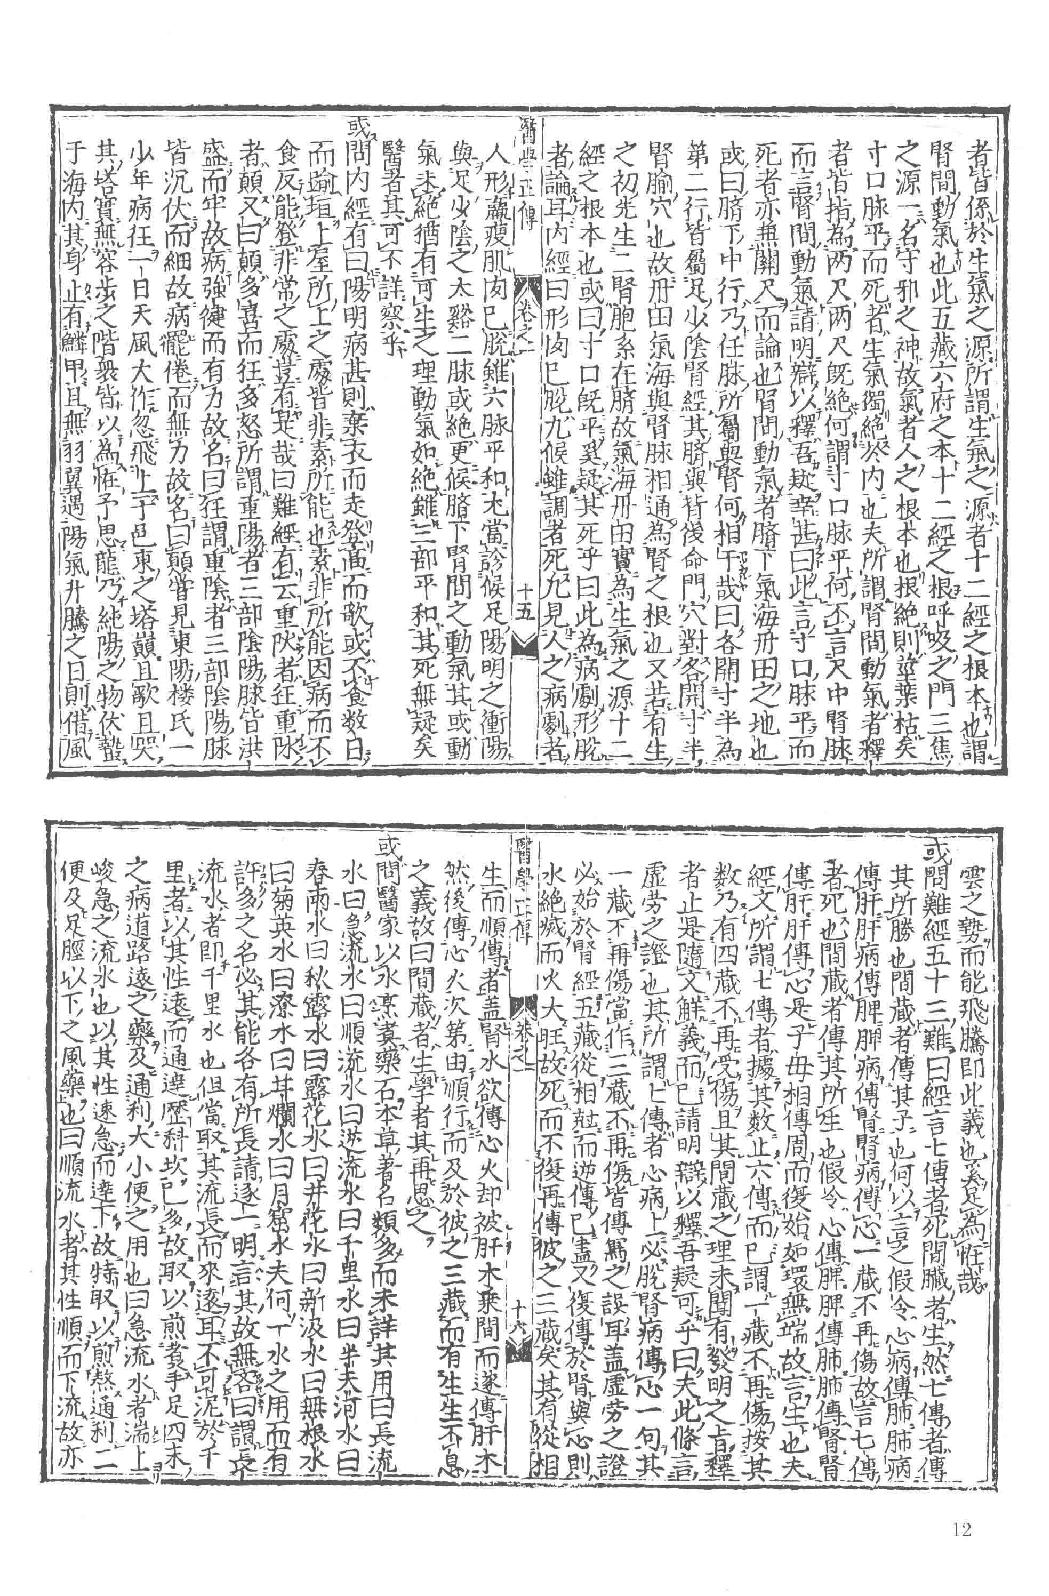 者皆係於生氣之源所謂生氣之源者十二經之根本也謂
腎間動氣也此五藏六府之本十二經之根呼吸之門三焦
之源一名守邪之神故氣者人之根本也根絕則莖葉枯矣
寸口脉平而死者生氣獨絕於內也夫所謂腎間動氣者釋
者皆指為兩尺兩尺既絕何謂寸口脉平何不言尺中腎脉
而言腎間動氣請明辯以釋吾疑幸甚曰此言寸口脉平而
死者亦兼關尺而論也腎間動氣者臍下氣海丹田之地也
或曰臍下中行乃任脉所屬與腎何相干哉曰各開寸半為
第二行皆屬足少陰腎經其臍與背後命門穴對各開寸半
腎腧穴也故丹田氣海與腎脉相通為腎之根也又若有生
之初先生二腎胞系在臍故氣海丹田實為生氣之源十二
經之根本也或曰寸口既平奚疑其死乎曰此為病劇形脫
者論耳內經曰形肉已脫九候雖調者死凡見人之病劇者
醫學正傳 卷之一 十五
人形羸瘦肌肉已脫雖六脉平和尤當診候足陽明之衝陽
與足少陰之太谿二脉或絕更候臍下腎間之動氣其或動
氣未絕猶有可生之理動氣如絕雖三部平和其死無疑矣
醫者其可不詳察乎
或問內經有曰陽明病甚則棄衣而走登高而歌或不食数日
而踰垣上屋所上之處皆非素所能也素非所能因病而不
食反能登非常之處豈有是哉曰難經有云重陽者狂重陰
者顛又曰顛多喜而狂多怒所謂重陽者三部陰陽脉皆洪
盛而牢故病強健而有力故名曰狂謂重陰者三部陰陽脉
皆沉伏而細故病罷倦而無力故名曰顛嘗見東陽楼氏一
少年病狂一日天風大作忽飛上予邑東之塔巔且歌且哭
其塔實無容步之階衆皆以為怪予思龍乃純陽之物伏蟄
于海內其身止有鱗甲且無羽翼遇陽氣升騰之日則借風
雲之勢而能飛騰即此義也奚足為怪哉
或問難經五十三難曰經言七傳者死間臟者生然七傳者傳
其所勝也間藏者傳其子也何以言之假令心病傳肺肺病
傳肝肝病傳脾脾病傳腎腎病傳心一藏不再傷故言七傳
者死也間藏者傳其所生也假令心傳脾脾傳肺肺傳腎腎
傳肝肝傳心是子毋相傳周而復始如環無端故言生也夫
經文所謂七傳者據其数止六傳而已謂一藏不再傷按其
数乃有四藏不再受傷且其間藏之理未聞有發明之旨釋
者止是隨文解義而已請明辯以釋吾疑可乎曰夫此條言
虛劳之證也其所謂七傳者心病上必脫腎病傳心一句其
一藏不再傷當作二藏不再傷皆傳寫之誤耳盖虛劳之證
必始於腎經五藏從相尅而逆傳已盡又復傳於腎與心則
水絕滅而火大旺故死而不復再傳彼之三藏矣其有從相
醫學正傳 卷之一 十六
生而順傳者盖腎水欲傳心火却被肝木乘間而遂傳肝木
然後傳心火次第由順行而及於彼之三藏而有生生不息
之義故曰間藏者生學者其再思之
或問醫家以水烹煑藥石本草著名類多而未詳其用曰長流
水曰急流水曰順流水曰逆流水曰千里水曰半天河水曰
春雨水曰秋露水曰露花水曰井花水曰新汲水曰無根水
曰菊英水曰潦水曰井爛水曰月窟水夫何一水之用而有
許多之名必其能各有所長請逐一明言其故無吝曰謂長
流水者即千里水也但當取其流長而來遠耳不可泥於千
里者以其性遠而通達歷科坎已多故取以煎煮手足四末
之病道路遠之藥及通利大小便之用也曰急流水者湍上
峻急之流水也以其性速急而達下故特取以煎熬通利二
便及足脛以下之風藥也曰順流水者其性順而下流故亦
12